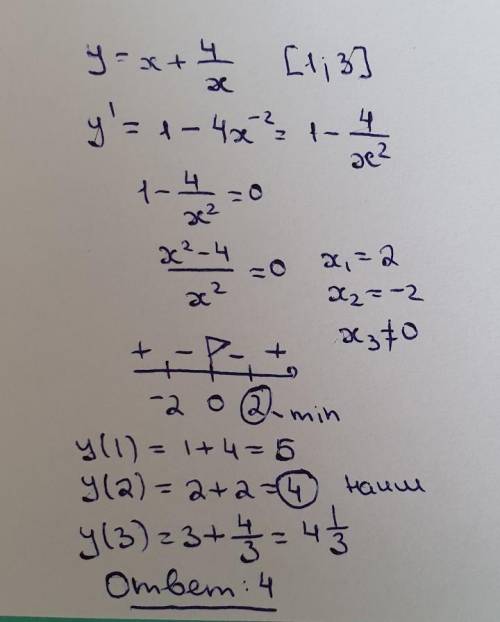 y = x + 4/x [1; 3]
y' = 1 - 4x⁻² = 1 - 4/x²
1 - 4/x² = 0
(x² - 4)/x² = 0 x₁ = 2
x₂ = -2
x₃ ≠ 0
+ - - +
-2 0 2 - min
y(1) = 1 + 4 = 5
y(2) = 2 + 2 = 4 наим
y(3) = 3 + 4/3 = 4 1/3
Ответ: 4